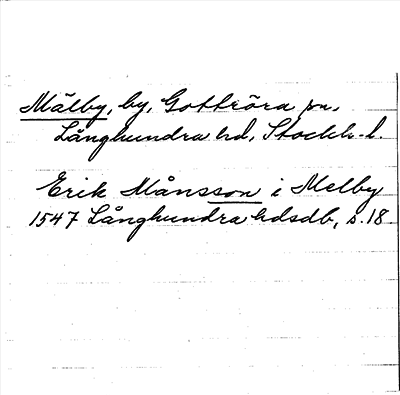 Mälby, by, Gottröra sn,
Långhundra hd, Stockh. l.
Erik Månsson i Melby
1547 Långhundra hdsdb, s. 18